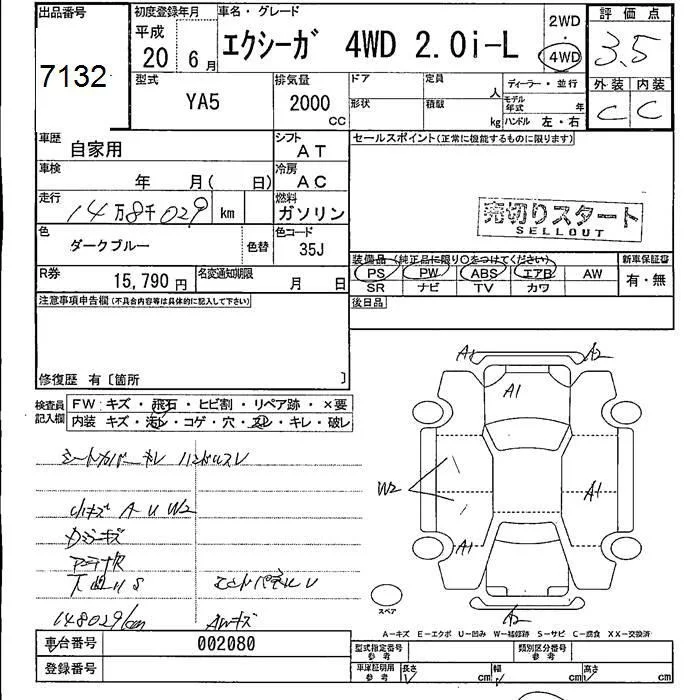 出品番号
7132
初度登録年月
平成
20 6月
車名・グレード
エクシーガ 4WD 2.0i-L
2WD
・
4WD
評価点
3.5
外装 内装
C C
型式
YA5
排気量
2000
CC
ドア
形状
定員
人
積載
kg
ディーラー・並行
モデル年式 年
ハンドル 左・右
車歴
自家用
シフト
AT
セールスポイント(正常に機能するものに限ります)
車検
年 月( 日)
冷房
AC
走行
14万8千029 km
燃料
ガソリン
売切りスタート
SELLOUT
色
ダークブルー
色替
色コード
35J
装備品(純正品に限り○をつけてください)
新車保証書
PS PW ABS エアB AW
有・無
SR ナビ TV カワ
R券
15,790円
名変通知期限
月 日
後日品
注意事項申告欄(不具合内容等は具体的に記入して下さい)
修復歴 有〔箇所 〕
検査員記入欄
FW:キズ・飛石・ヒビ割・リペア跡・×要
内装 キズ・汚レ・コゲ・穴・スレ・キレ・破レ
シートカバーキレ ハンドルスレ
小キズ A U W2
下廻りS
148029km AWキズ
A1 A2
A1
W2
A1
A1
A2
スペア
A-キズ E-エクボ U-凹み W-補修跡 S-サビ C-腐食 XX-交換済
車台番号
002080
登録番号
型式指定番号
参考
類別区分番号
参考
車庫証明用
参考
長さ cm
幅 cm
高さ cm